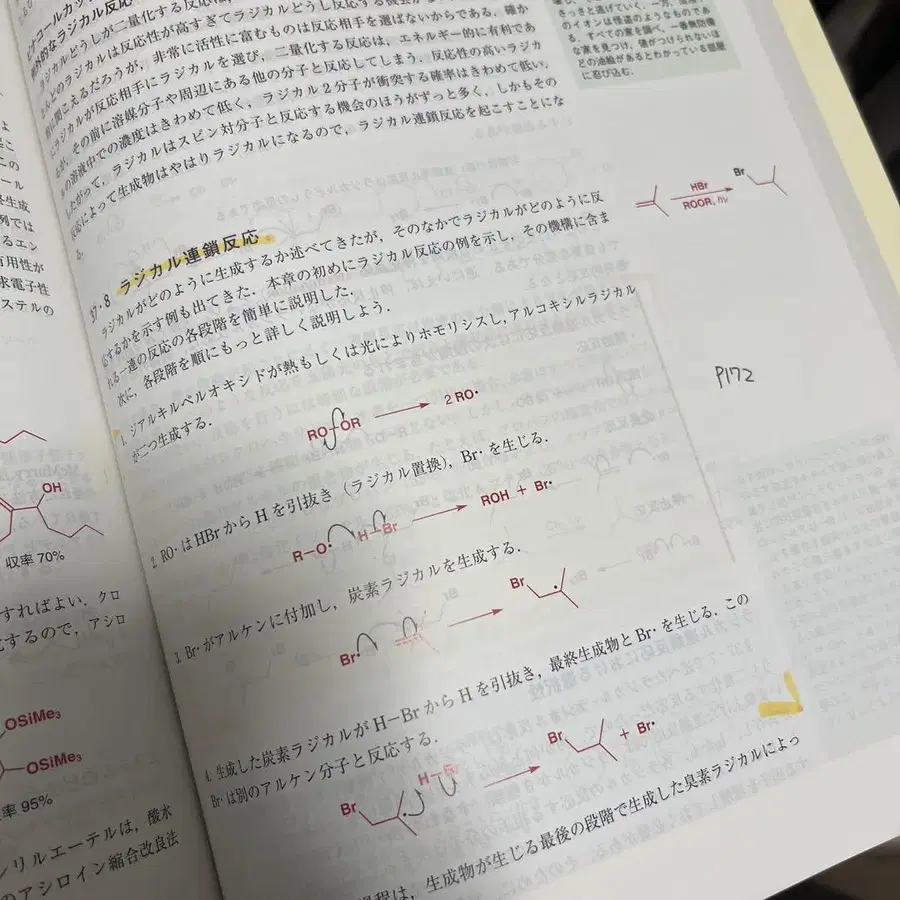 的なラジカル反応
ラジカルどうしが二量化する反応は
んどのラジカルは反応性が高すぎてラジカルどうし反応する機会が
聞こえるだろうが，非常に活性に富むものは反応相手を選ばないからである．確か
にラジカルが反応相手にラジカルを選び，二量化する反応は，エネルギー的に有利であ
るが，その前に溶媒分子や周辺にある他の分子と反応してしまう．反応性の高いラジカ
ルの溶液中での濃度はきわめて低く，ラジカル2分子が衝突する確率はきわめて低い．
したがって，ラジカルはスピン対分子と反応する機会のほうがずっと多く，しかもその
反応によって生成物はやはりラジカルになるので，ラジカル連鎖反応を起こすことにな
る．
きっさと逃げていく．一方，溶液
のイオンは怪盗のようなものであ
る．すべての家を調べ，一番無防備
な家を見つけ，値がつけられないほ
どの油絵があるとわかっている部屋
に忍び込む．
HBr
ROOR, hν
Br
37・8 ラジカル連鎖反応
ラジカルがどのように生成するか述べてきたが，そのなかでラジカルがどのように反
応するかを示す例も出てきた．本章の初めにラジカル反応の例を示し，その機構に含ま
れる一連の反応の各段階を簡単に説明した．
次に，各段階を順にもっと詳しく説明しよう．
1. ジアルキルペルオキシドが熱もしくは光によりホモリシスし，アルコキシルラジカル
が二つ生成する．
RO OR 2 RO•
P172
2. RO• は HBr から H を引抜き（ラジカル置換），Br• を生じる．
R−O• H−Br ROH + Br•
3. Br• がアルケンに付加し，炭素ラジカルを生成する．
Br• Br
4. 生成した炭素ラジカルが H−Br から H を引抜き，最終生成物と Br• を生じる．この
Br• は別のアルケン分子と反応する．
Br H−Br Br + Br•
過程は，生成物が生じる最後の段階で生成した臭素ラジカルによっ
生成
列では
るエン
有用性が
求電子性
ステルの
OH
収率 70%
すればよい．クロ
化するので，アシロ
OSiMe3
OSiMe3
率 95%
シリルエーテルは，酸水
のアシロイン縮合改良法